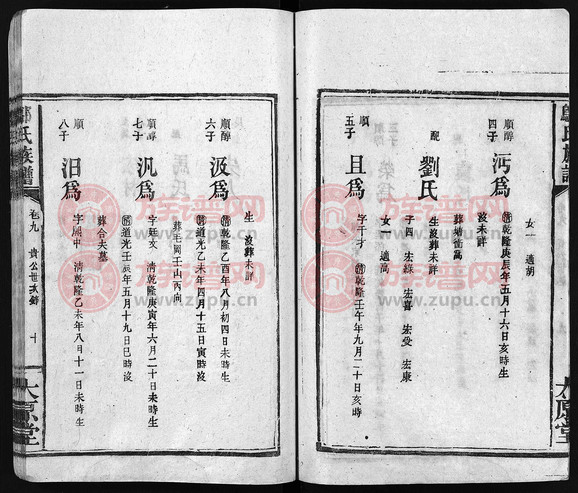 女一 適胡
順醇
四子 沔爲 淸乾隆庚辰年五月十六日亥時生
沒未詳
葬塘衝高
配 劉氏 生沒葬未詳
子四 宏綠 宏會 宏受 宏康
女一 適高
順
五子 且爲 字千才 淸乾隆壬午年九月二十日亥時
生 沒葬未詳
順醇
六子 汲爲 淸乾隆乙酉年八月初四日未時生
淸道光乙未年四月十五日寅時沒
葬毛岡壬山丙向
順醇
七子 汎爲 字廷文 淸乾隆庚寅年六月二十日未時生
淸道光壬辰年五月十九日巳時沒
葬合夫墓
順
八子 汨爲 字 中 淸乾隆乙未年八月十一日未時生
氏族譜
卷九 貴公世次錄 十
太原堂
族谱网
www.zupu.cn